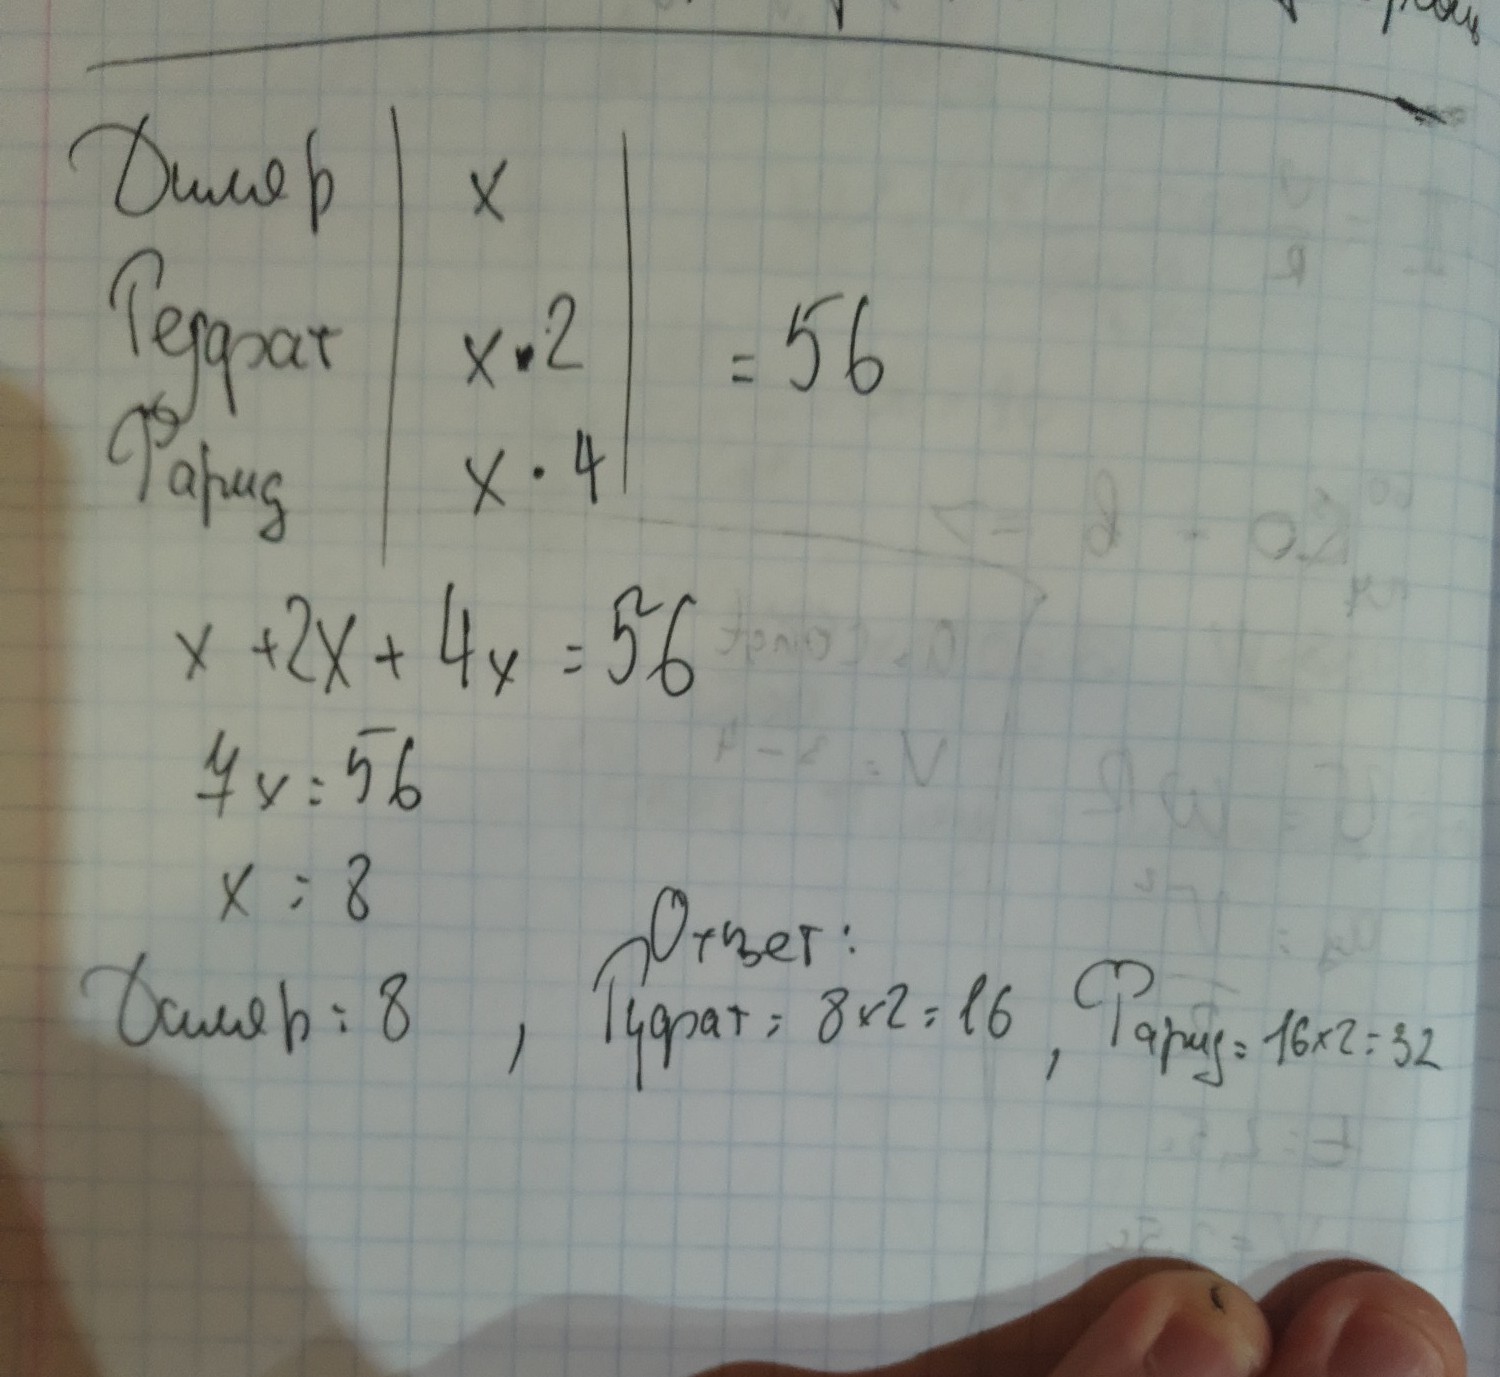 Дилер | x |
Гудрат | x · 2 | = 56
Фарид | x · 4 |
x + 2x + 4x = 56
7x = 56
x = 8
Ответ:
Дилер = 8 , Гудрат = 8x2 = 16 , Фарид = 16x2 = 32